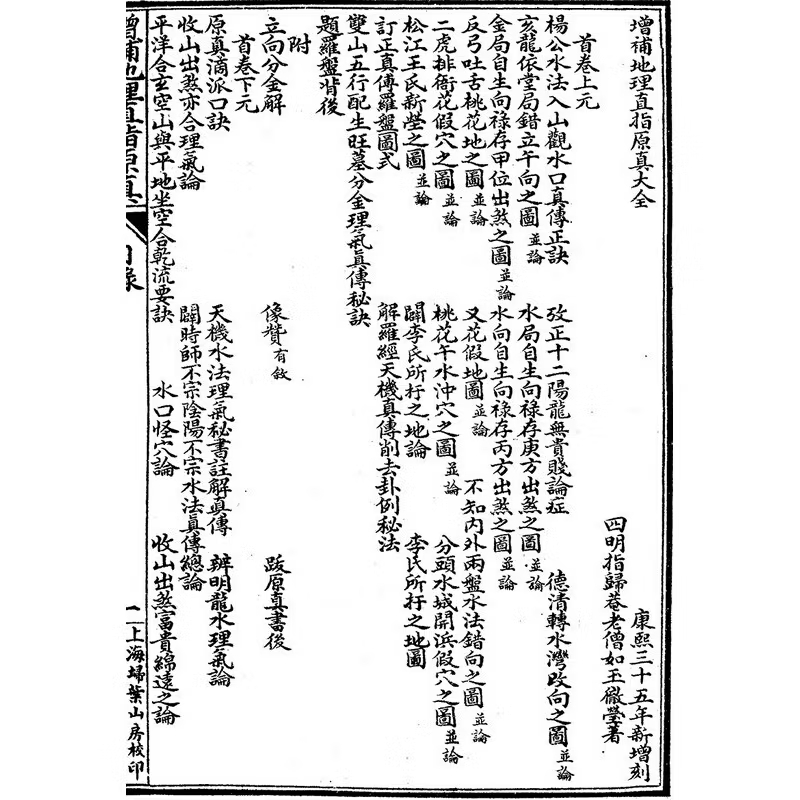 增補地理直指原真大全
康熙三十五年新增刻
四明指歸菴老僧如玉徹瑩著
首卷上元
楊公水法入山觀水口真傳正訣
攷正十二陽龍無貴賤論症
德清轉水灣改向之圖並論
亥龍依堂局錯立午向之圖並論
水局自生向祿存庚方出煞之圖並論
金局自生向祿存甲位出煞之圖並論
水向自生向祿存丙方出煞之圖並論
反弓吐舌桃花地之圖並論
又花假地圖並論
不知內外兩盤水法錯向之圖並論
二虎排衙花假穴之圖並論
桃花午水沖穴之圖並論
分頭水城開浜假穴之圖並論
松江王氏新塋之圖並論
闢李氏所扦之地論
李氏所扦之地圖
訂正真傳羅盤圖式
解羅經天機真傳削去卦例秘法
雙山五行配生旺墓分金理氣真傳秘訣
題羅盤背後
附
立向分金解
像贊有敘
跋原真書後
首卷下元
原真滴派口訣
天機水法理氣秘書註解真傳
辨明龍水理氣論
收山出煞亦合理氣論
闢時師不宗陰陽不宗水法真傳總論
平洋合玄空山與平地坐空合乾流要訣
水口怪穴論
收山出煞富貴綿遠之論
增補地理直指原真
目錄
一
上海埽葉山房校印